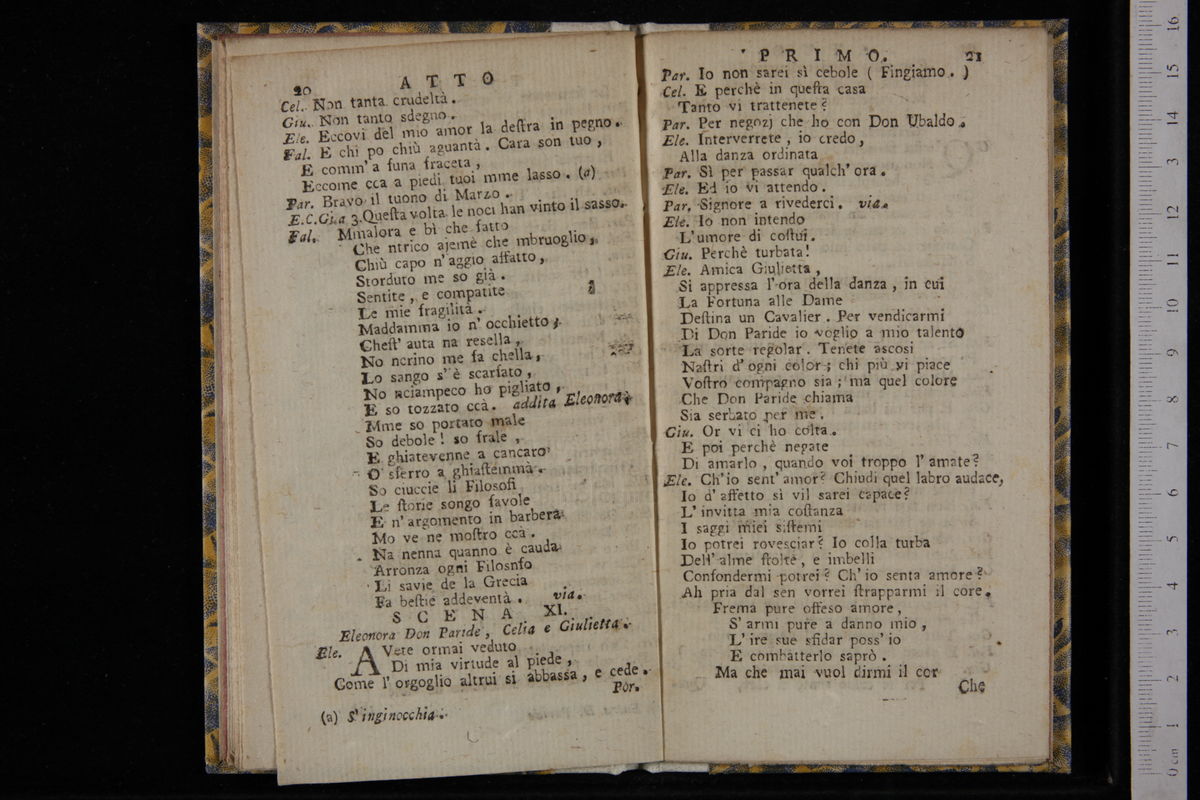 20 ATTO
Cel. Non tanta crudeltà.
Giu. Non tanto sdegno.
Ele. Eccovi del mio amor la deſtra in pegno.
Fal. E chi po chiù aguantà. Cara son tuo,
E comm' a funa fraceta,
Eccome cca a piedi tuoi mme lasso. (a)
Par. Bravo il tuono di Marzo.
E.C.Gi.a 3. Queſta volta le noci han vinto il sasso.
Fal. Mmalora e bì che fatto
Che ntrico ajemè che mbruoglio,
Chiù capo n' aggio affatto,
Storduto me so già.
Sentite, e compatite
Le mie fragilità.
Maddamma io n' occhietto;
Cheſt' auta na resella,
No nerino me fa chella,
Lo sango s' è scarfato,
No nciampeco ho pigliato,
E so tozzato ccà. addita Eleonora;
Mme so portato male
So debole! so frale,
E ghiatevenne a cancaro
O' sferro a ghiaſtemmà.
So ciuccie li Filosofi
Le ſtorie songo favole
E n' argomento in barbera
Mo ve ne moſtro ccà.
Na nenna quanno è cauda
Arronza ogni Filosnfo
Li savie de la Grecia
Fa beſtie addeventà. via.
SCENA XI.
Eleonora Don Paride, Celia e Giulietta.
Ele. AVete ormai veduto
Di mia virtude al piede,
Come l' orgoglio altrui si abbassa, e cede.
Por.
(a) S' inginocchia.
PRIMO. 21
Par. Io non sarei sì cebole ( Fingiamo. )
Cel. E perchè in queſta casa
Tanto vi trattenete?
Par. Per negozj che ho con Don Ubaldo.
Ele. Interverrete, io credo,
Alla danza ordinata
Par. Sì per passar qualch' ora.
Ele. Ed io vi attendo.
Par. Signore a rivederci. via.
Ele. Io non intendo
L' umore di coſtui.
Giu. Perchè turbata!
Ele. Amica Giulietta,
Si appressa l' ora della danza, in cui
La Fortuna alle Dame
Deſtina un Cavalier. Per vendicarmi
Di Don Paride io voglio a mio talento
La sorte regolar. Tenete ascosi
Naſtri d' ogni color; chi più vi piace
Voſtro compagno sia; ma quel colore
Che Don Paride chiama
Sia serbato per me.
Giu. Or vi ci ho colta.
E poi perchè negate
Di amarlo, quando voi troppo l' amate?
Ele. Ch' io sent' amor? Chiudi quel labro audace,
Io d' affetto sì vil sarei capace?
L' invitta mia coſtanza
I saggi miei siſtemi
Io potrei rovesciar? Io colla turba
Dell' alme ſtolte, e imbelli
Confondermi potrei? Ch' io senta amore?
Ah pria dal sen vorrei ſtrapparmi il core.
Frema pure offeso amore,
S' armi pure a danno mio,
L' ire sue sfidar poss' io
E combatterlo saprò.
Ma che mai vuol dirmi il cor
Che
0 cm 1 2 3 4 5 6 7 8 9 10 11 12 13 14 15 16